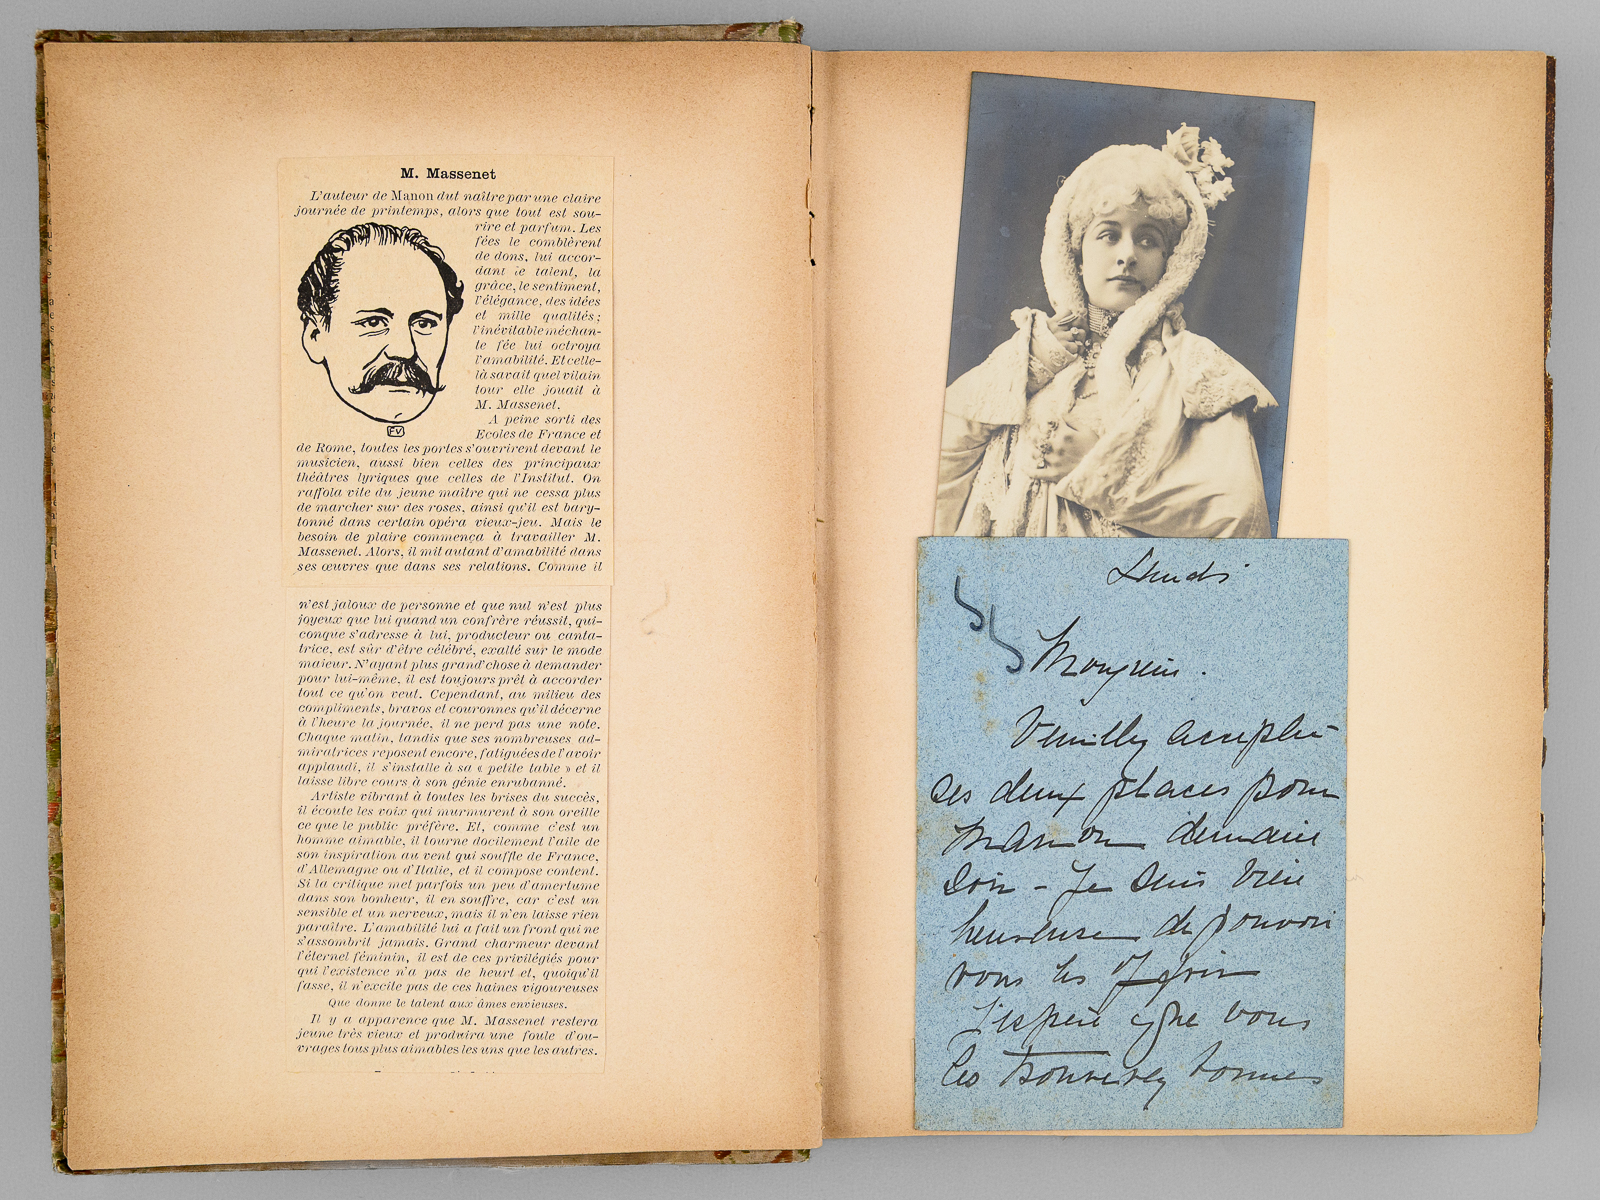 M. Massenet
L'auteur de Manon dut naître par une claire
journée de printemps, alors que tout est sou-
rire et parfum. Les
fées le comblèrent
de dons, lui accor-
dant le talent, la
grâce, le sentiment,
l'élégance, des idées
et mille qualités;
l'inévitable méchan-
te fée lui octroya
l'amabilité. Et celle-
là savait quel vilain
tour elle jouait à
M. Massenet.
A peine sorti des
Ecoles de France et
de Rome, toutes les portes s'ouvrirent devant le
musicien, aussi bien celles des principaux
théâtres lyriques que celles de l'Institut. On
raffola vite du jeune maître qui ne cessa plus
de marcher sur des roses, ainsi qu'il est bary-
tonné dans certain opéra vieux-jeu. Mais le
besoin de plaire commença à travailler M.
Massenet. Alors, il mit autant d'amabilité dans
ses œuvres que dans ses relations. Comme il
FV
n'est jaloux de personne et que nul n'est plus
joyeux que lui quand un confrère réussit, qui-
conque s'adresse à lui, producteur ou canta-
trice, est sûr d'être célébré, exalté sur le mode
maieur. N'ayant plus grand'chose à demander
pour lui-même, il est toujours prêt à accorder
tout ce qu'on veut. Cependant, au milieu des
compliments, bravos et couronnes qu'il décerne
à l'heure la journée, il ne perd pas une note.
Chaque matin, tandis que ses nombreuses ad-
miratrices reposent encore, fatiguées de l'avoir
applaudi, il s'installe à sa « petite table » et il
laisse libre cours à son génie enrubanné.
Artiste vibrant à toutes les brises du succès,
il écoute les voix qui murmurent à son oreille
ce que le public préfère. Et, comme c'est un
homme aimable, il tourne docilement l'aile de
son inspiration au vent qui souffle de France,
d'Allemagne ou d'Italie, et il compose content.
Si la critique met parfois un peu d'amertume
dans son bonheur, il en souffre, car c'est un
sensible et un nerveux, mais il n'en laisse rien
paraître. L'amabilité lui a fait un front qui ne
s'assombrit jamais. Grand charmeur devant
l'éternel féminin, il est de ces privilégiés pour
qui l'existence n'a pas de heurt et, quoiqu'il
fasse, il n'excite pas de ces haines vigoureuses
Que donne le talent aux âmes envieuses.
Il y a apparence que M. Massenet restera
jeune très vieux et produira une foule d'ou-
vrages tous plus aimables les uns que les autres.
Lundi
Monsieur.
Veuillez accepter
ces deux places pour
Manon demain
soir - Je suis bien
heureuse de pouvoir
vous les offrir
J'espère que vous
les trouverez bonnes